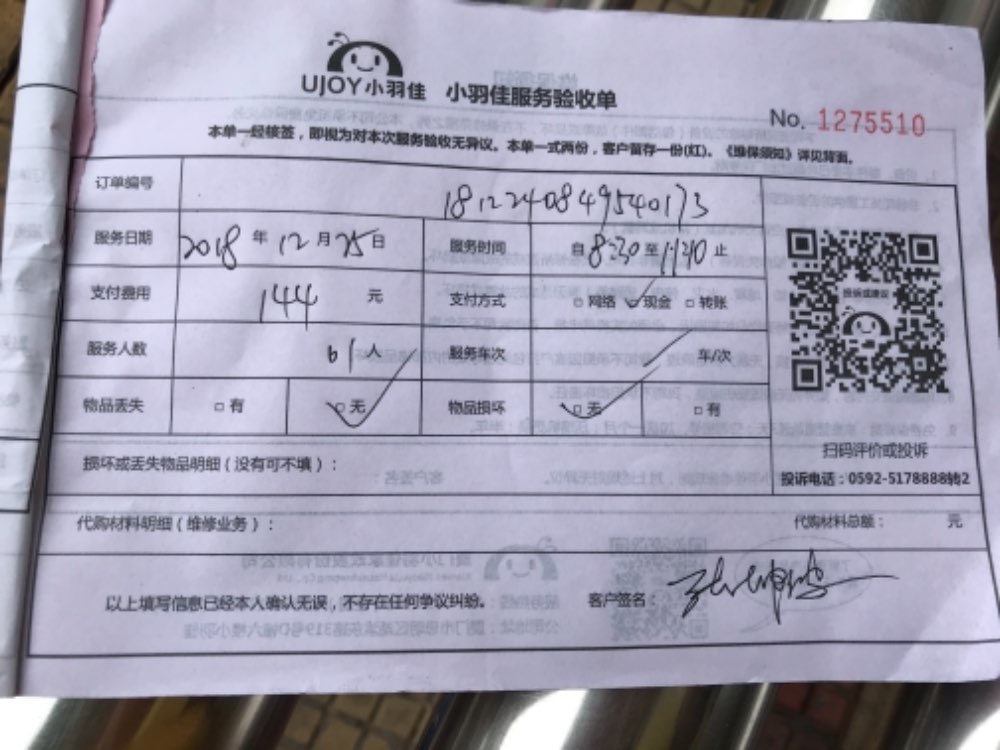 UJOY小羽佳 小羽佳服务验收单
No. 1275510
本单一经核签，即视为对本次服务验收无异议。本单一式两份，客户留存一份(红)。《维保须知》详见背面。
订单编号 1812240849540173
服务日期 2018 年 12 月 25 日 服务时间 自 8:30 至 11:40 止
支付费用 144 元 支付方式 □网络 ✓现金 □转账
服务人数 1人 服务车次 车/次
物品丢失 □有 ☑无 物品损坏 ☑无 □有
投诉或建议
扫码评价或投诉
投诉电话：0592-5178888转2
损坏或丢失物品明细（没有可不填）：
代购材料明细（维修业务）： 代购材料总额： 元
以上填写信息已经本人确认无误，不存在任何争议纠纷。 客户签名：